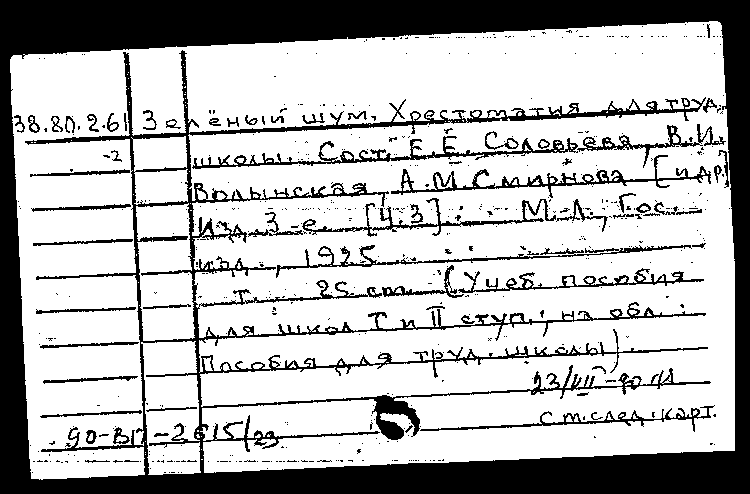 38.80.2.61 Зелёный шум. Хрестоматия для труд.
-2 школы. Сост. Е.Е. Соловьева, В.И.
Волынская, А.М. Смирнова [и др.]
Изд. 3-е. [Ч.3]. М.-Л., Гос.
изд., 1925
т. 25 cm. (Учеб. пособия
для школ I и II ступ.; на обл.:
Пособия для труд. школы).
23/VII-90
90-ВП-2615/23 См. след. карт.